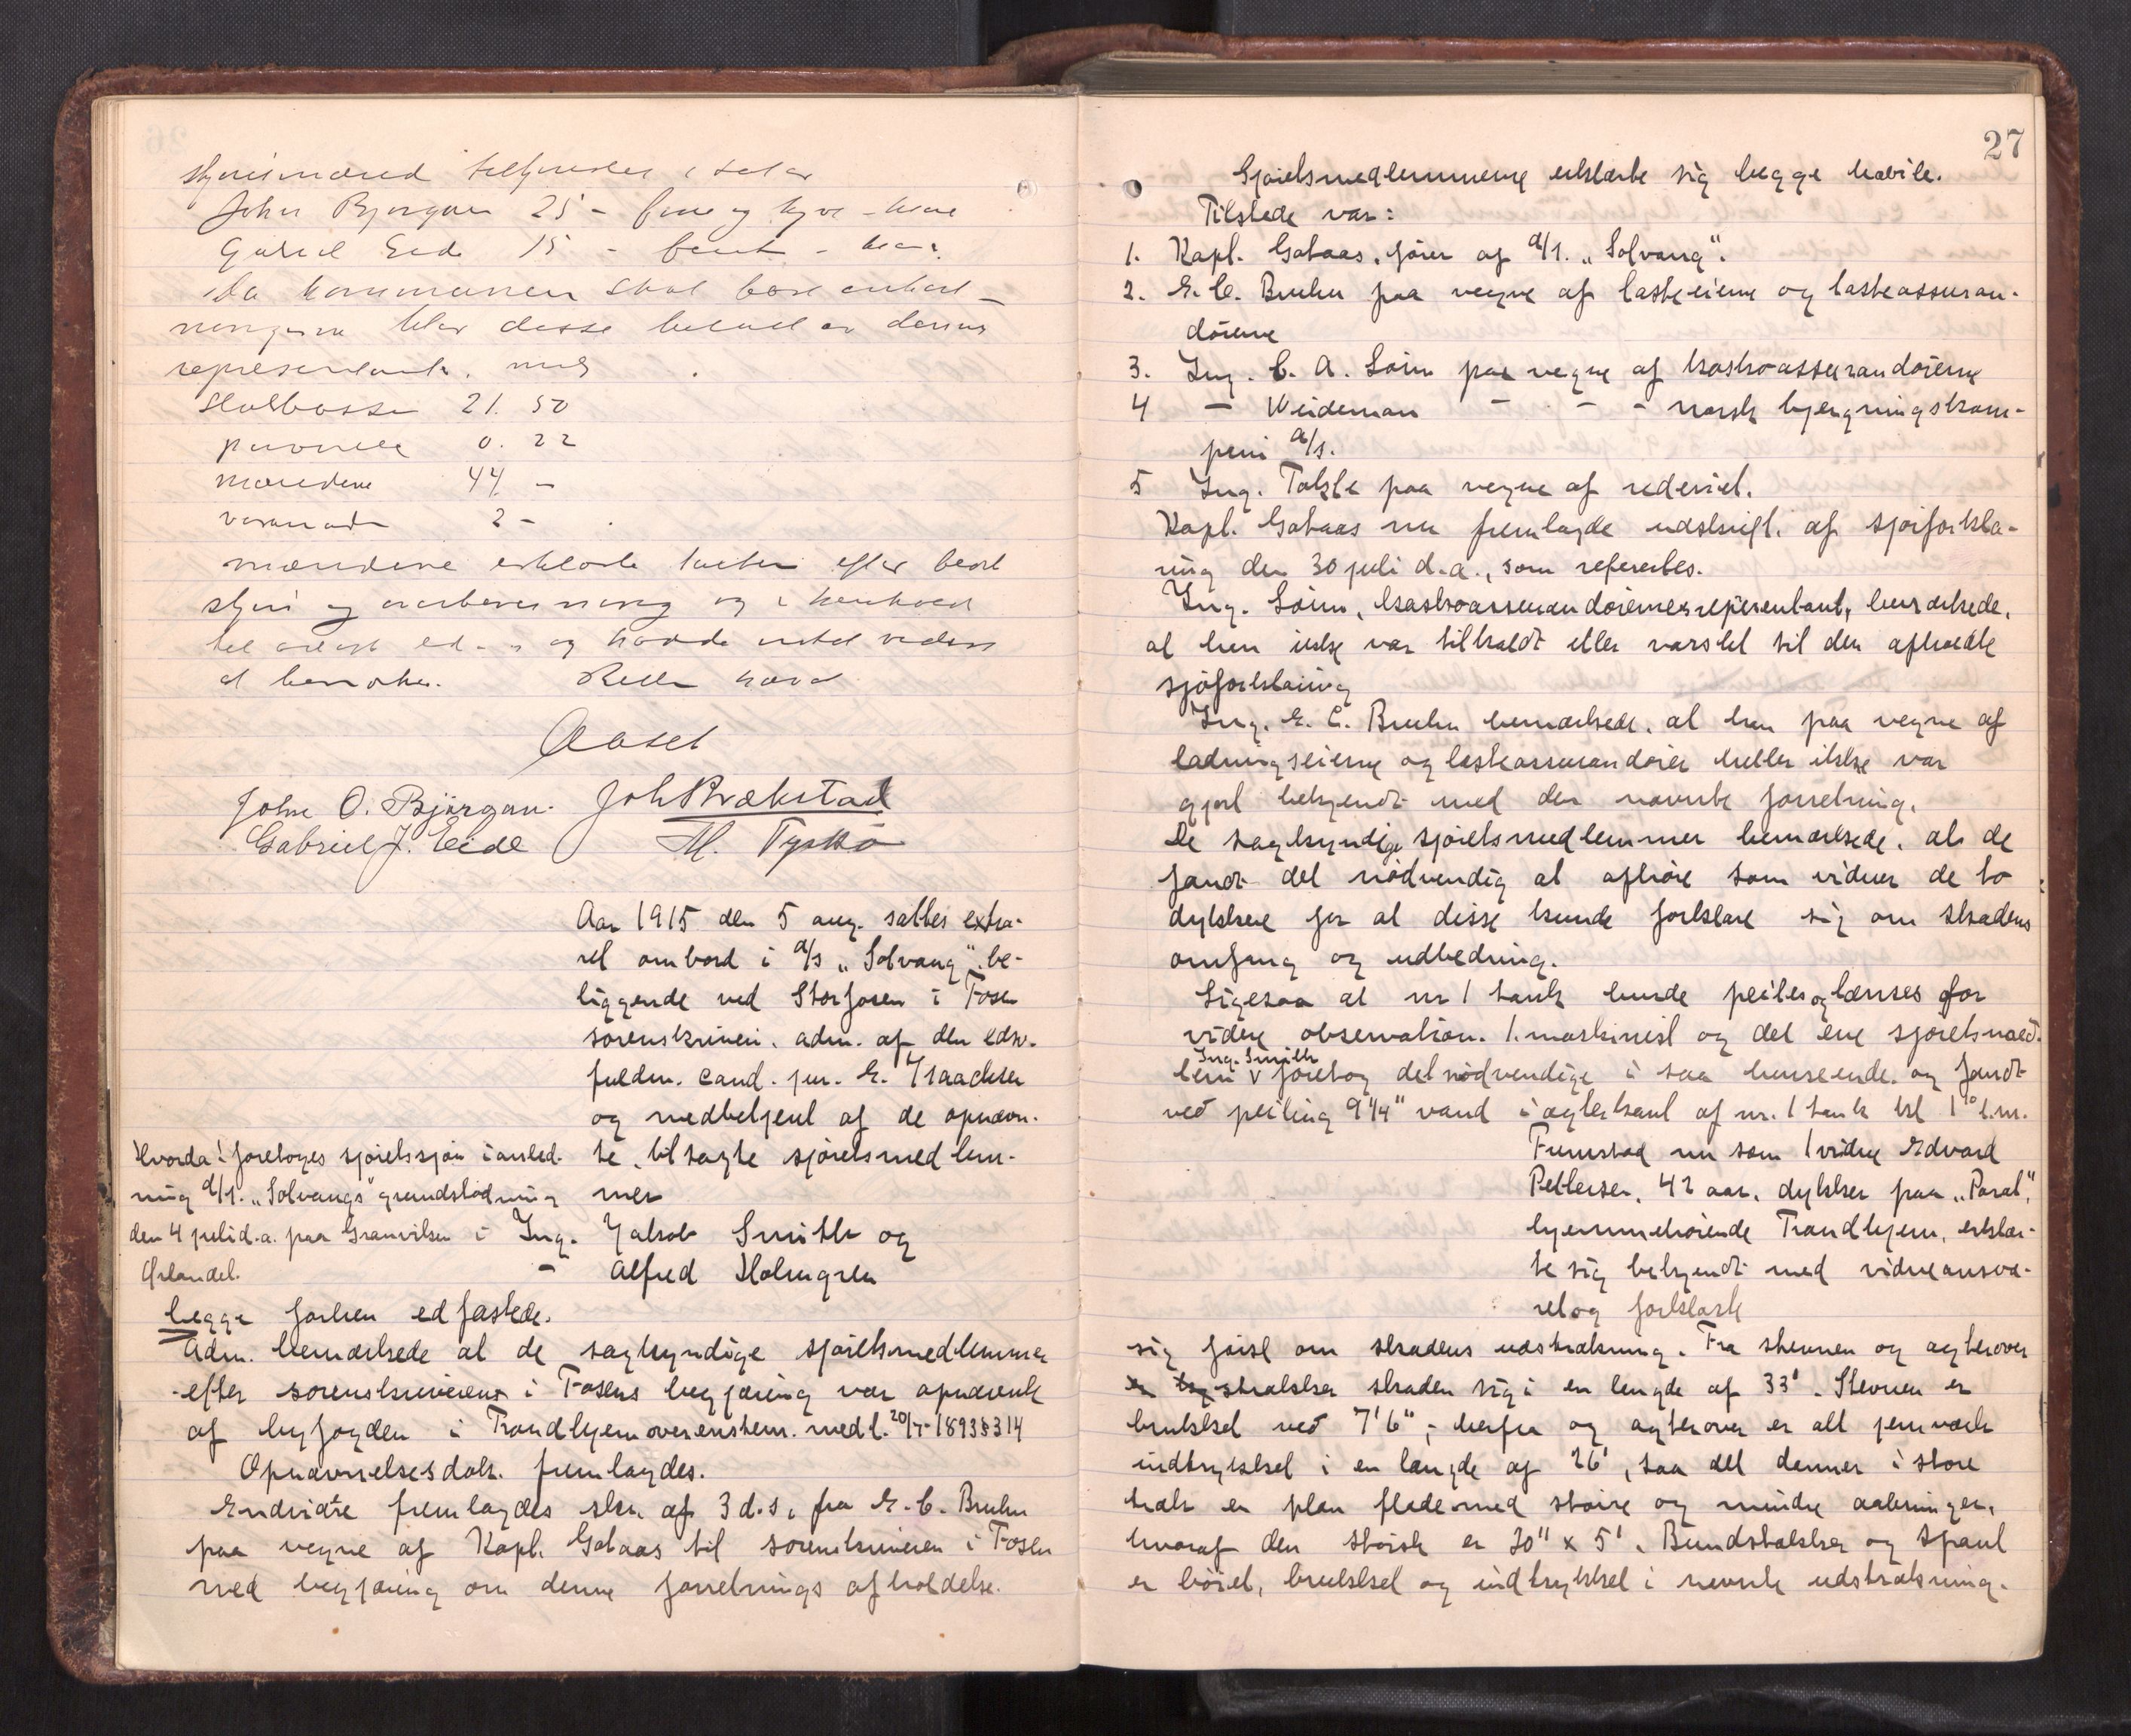 John Bjørgan 25 - fem og tyve - kron
Gabriel Eide 15 - femt - kron
Da kommunen skal bære omkost-
ningerne blev disse betalt av dennes
representant, med
Statskassen 21. 50
0. 22
mændene 44 -
2 -
mændene erklærte taxten efter bedste
skjøn og overbevisning og i henhold
til avlagt ed - og havde intet videre
at bemerke. Retten hævet
Aaset
John O. Bjørgan. Joh Brækstad
Gabriel J. Eide M. Tyskø
Aar 1915 den 5 aug. sattes extra-
ret ombord i d/s „Solvang", be-
liggende ved Storfosen i Fosen
sorenskriveri, adm. af den edsv.
fuldm. cand. jur. E. Isaachsen
og medbetjent af de opnævn-
te, tiltagte sjøretsmedlem-
mer
Hvorda! foretoges sjøretssjøn i anled-
ning d/s. „Solvangs" grundstødning
den 4 juli d.a. paa Granvilsen i
Ørlandet.
Ing. Jakob Smith og
— Alfred Holmgren
begge forhen edfæstede.
Adm. bemærkede at de sagkyndige sjøretsmedlemmer
efter sorenskriveren i Fosens begjæring var opnævnte
af byfogden i Trondhjem overenstem. med l. 20/7-1893 § 314
Opnævnelsesdok. fremlagdes.
Endvidre fremlagdes skr. af 3 d.s. fra E. C. Bruhn
paa vegne af Kapt. Gataas til sorenskriveren i Fosen
med begjæring om denne forretnings afholdelse.
27
Sjøretsmedlemmerne erklærte sig begge habile.
Tilstede var:
1. Kapt. Gataas, fører af d/s. „Solvang".
2. E. C. Bruhn paa vegne af lasteeierne og lasteassuran-
dørerne
3. Ing. C. A. Loim paa vegne af kaskoassurandørerne
4 — Weideman — — — norsk bjergningskom-
pani a/s.
5 Ing. Tolste paa vegne af rederiet.
Kapt. Gataas nu fremlagde udskrift. af sjøforkla-
ring den 30 juli d.a., som refereertes.
Ing. Loim, kaskoassurandørernes repesentant, bemærkede,
at han ikke var tilkaldt eller varslet til den afholdte
sjøforklaring
Ing. E. C. Bruhn bemærkede, at han paa vegne af
ladningseierne og lasteassurandører heller ikke var
gjort bekjendt med den nævnte forretning.
De sagkyndige sjøretsmedlemmer bemærkede, at de
fandt det nødvendig at afhøre som vidner de to
dykkere for at disse kunde forklare sig om skadens
omfang og udbedring.
Ligesaa at nr 1 tank burde peiles og lænses for
videre observation. 1. maskinist og det ene sjøretsmed-
lem v Ing. Smith foretog det nødvendige i saa henseende og fandt
ved peiling 9 1/4" vand i agterkant af nr. 1 tank
Fremstod nu som 1 vidne Edvard
Pettersen, 42 aar, dykker paa „Parat",
hjemmehørende Trondhjem, erklær-
te sig bekjendt med vidneansva-
ret og forklarte
sig først om skadens udstrækning. Fra stevnen og agterover
strækker skaden sig i en lengde af 33'. Stevnen er
brukket ved 7'6"; herfra og agterover er alt jernværk
indtrykket i en længde af 26', saa det danner i store
træk en plan flade med større og mindre aabninger,
hvoraf den største er 20" x 5'. Bundstokker og spant
er bøiet, brukket og indtrykket i nævnte udstrækning.